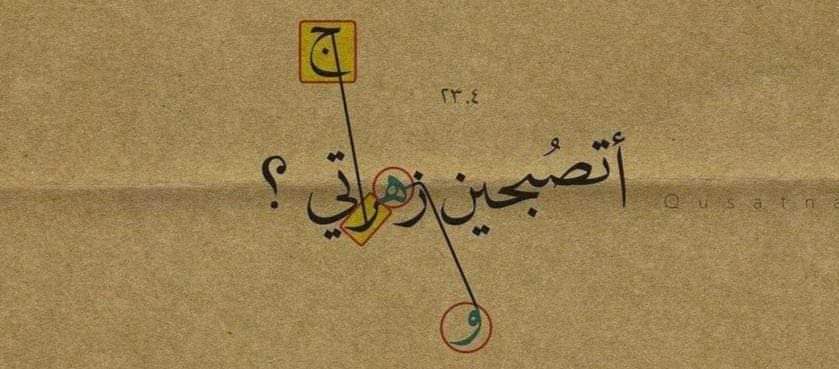 ج
٢٣.٤
أتصُبحين زهراتي ؟
Qusatna
و